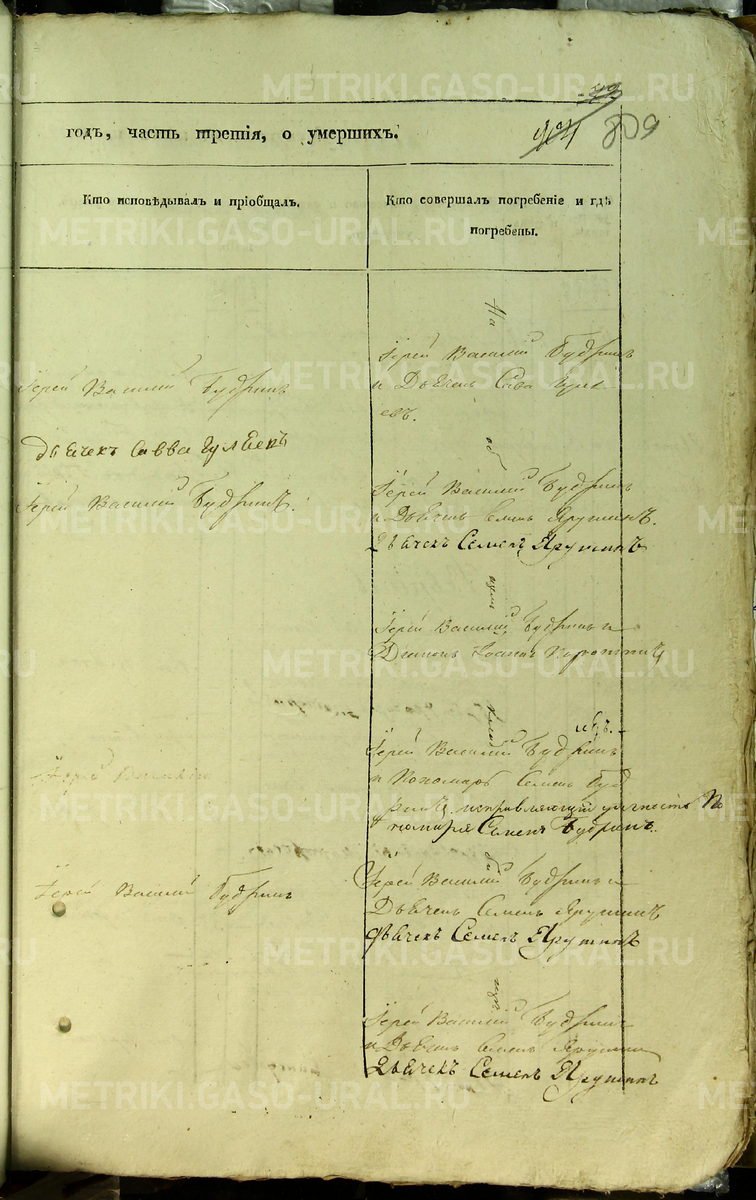 809
годъ, часть третія, о умершихъ.
Кто исповѣдывалъ и пріобщалъ.
Кто совершалъ погребеніе и гдѣ
погребены.
На
Іерей Василій Будринъ
и Дьячекъ Сава
евъ.
Іерей Василій Будринъ
дьячекъ Савва Гуляевъ
Іерей Василій Будринъ.
Іерей Василій Будринъ
и Дьячекъ Семенъ Ярутинъ.
Дьячекъ Семенъ Ярутинъ
Іерей Василій Будринъ и
Диаконъ Іоаннъ
Іерей Василій Будринъ
и Пономарь Семенъ Буд
ринъ исправляющій должность По
номаря Семенъ Будринъ.
Іерей Василій
Іерей Василій Будринъ
Іерей Василій Будринъ и
Дьячекъ Семенъ Ярутинъ
Дьячекъ Семенъ Ярутинъ
Іерей Василій Будринъ
и Дьячекъ Семенъ Ярутинъ
Дьячекъ Семенъ Ярутинъ
METRIKI.GASO-URAL.RU